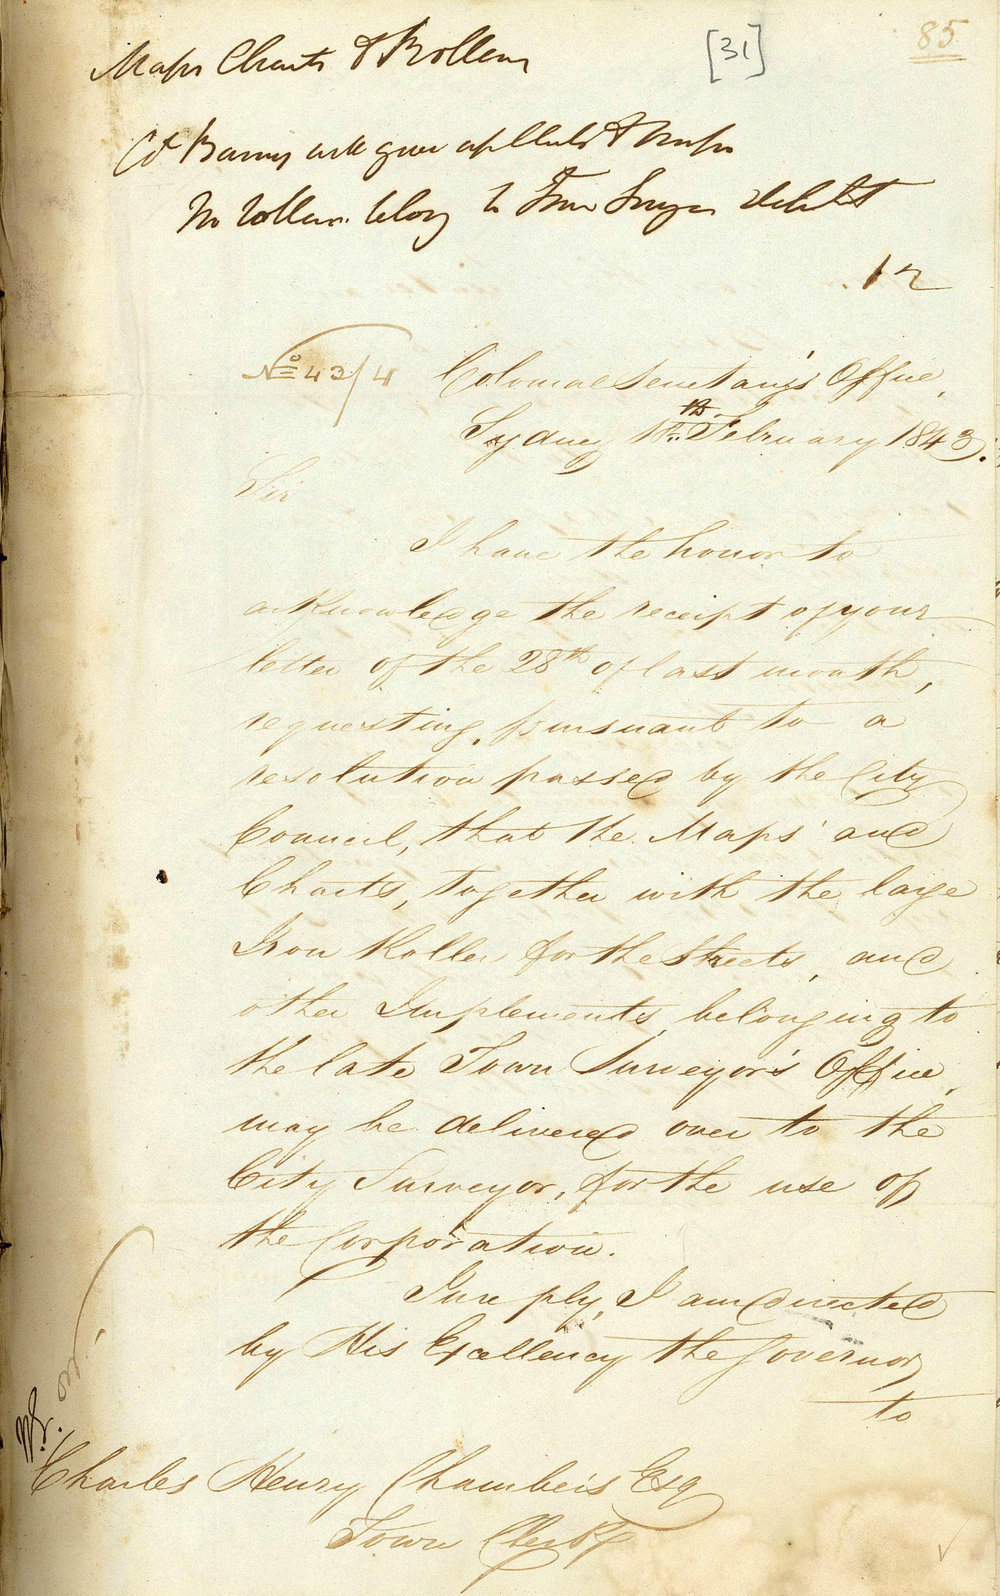 [31]
85
Maps Charts & Rollers
Col Barney will give up Charts & Maps
No Rollers belong to Town Surveyors
12
No 43/4 Colonial Secretary's Office,
Sydney February 1843.
Sir
I have the honor to
acknowledge the receipt of your
letter of the 28th of last month,
requesting, pursuant to a
resolution passed by the City
Council, that the Maps and
Charts, together with the large
Iron Roller for the Streets, and
other Implements, belonging to
the late Town Surveyor's Office,
may be delivered over to the
City Surveyor, for the use of
the Corporation.
In reply, I am directed
by His Excellency the Governor
to
Charles Henry Chambers Esq
Town Clerk